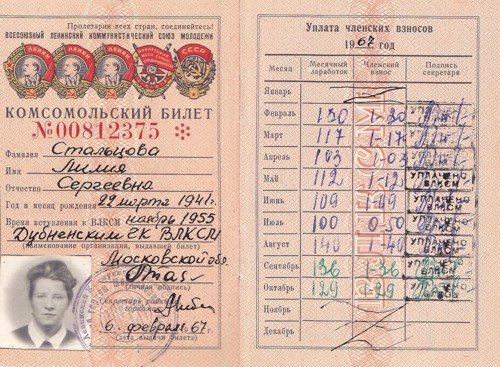 Пролетарии всех стран, соединяйтесь!
ВСЕСОЮЗНЫЙ ЛЕНИНСКИЙ КОММУНИСТИЧЕСКИЙ СОЮЗ МОЛОДЕЖИ
ЛЕНИН ЛЕНИН ЛЕНИН СССР
КОМСОМОЛЬСКИЙ БИЛЕТ
№00812375
Фамилия Стальцова
Имя Лилия
Отчество Сергеевна
Год и месяц рождения 22 марта 1941г.
Время вступления в ВЛКСМ ноябрь 1955
Дубненский ГК ВЛКСМ
(наименование организации, выдавшей билет)
Московской обл.
(личная подпись)
Секретарь
горкома
6 февраля 67г.
(дата выдачи билета)
Уплата членских взносов
1967 год
Месяц Месячный заработок Членский взнос Подпись секретаря
Январь
Февраль 130 1-30
Март 117 1-17
Апрель 103 1-03
Май 112 1-12 УПЛАЧЕНО ВЛКСМ
Июнь 109 1-09 УПЛАЧЕНО ВЛКСМ
Июль 100 0-50 УПЛАЧЕНО ВЛКСМ
Август 140 1-40 УПЛАЧЕНО ВЛКСМ
Сентябрь 136 1-36 УПЛАЧЕНО ВЛКСМ
Октябрь 129 1-29 УПЛАЧЕНО ВЛКСМ
Ноябрь
Декабрь